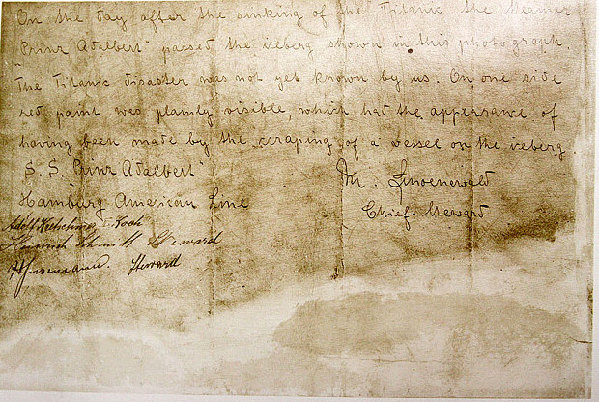 On the day after the sinking of the Titanic the steamer
"Prinz Adalbert" passed the iceberg shown in this photograph.
The Titanic disaster was not yet known by us. On one side
red paint was plainly visible, which had the appearance of
having been made by the scraping of a vessel on the iceberg.
S. S. "Prinz Adalbert" M.
Hamburg American Line Chief Steward
Adolf Cook
Heinrich Steward
Steward